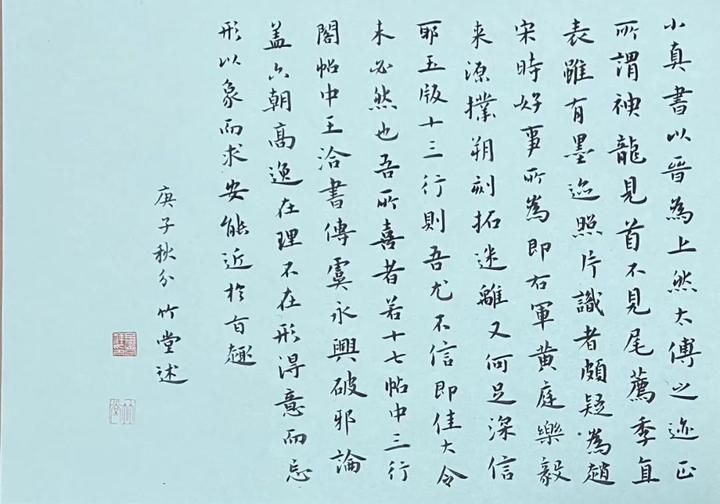 小真書以晉為上然太傅之迹正
所謂神龍見首不見尾薦季直
表雖有墨迹照片識者頗疑為趙
宋時好事所為即右軍黃庭樂毅
来源撲朔刻拓迷離又何足深信
耶玉版十三行則吾尤不信即佳大令
未必然也吾所喜者若十七帖中三行
閣帖中王洽書傳虞永興破邪論
盖六朝高逸在理不在形得意而忘
形以象而求安能近於百趣
庚子秋分竹堂述